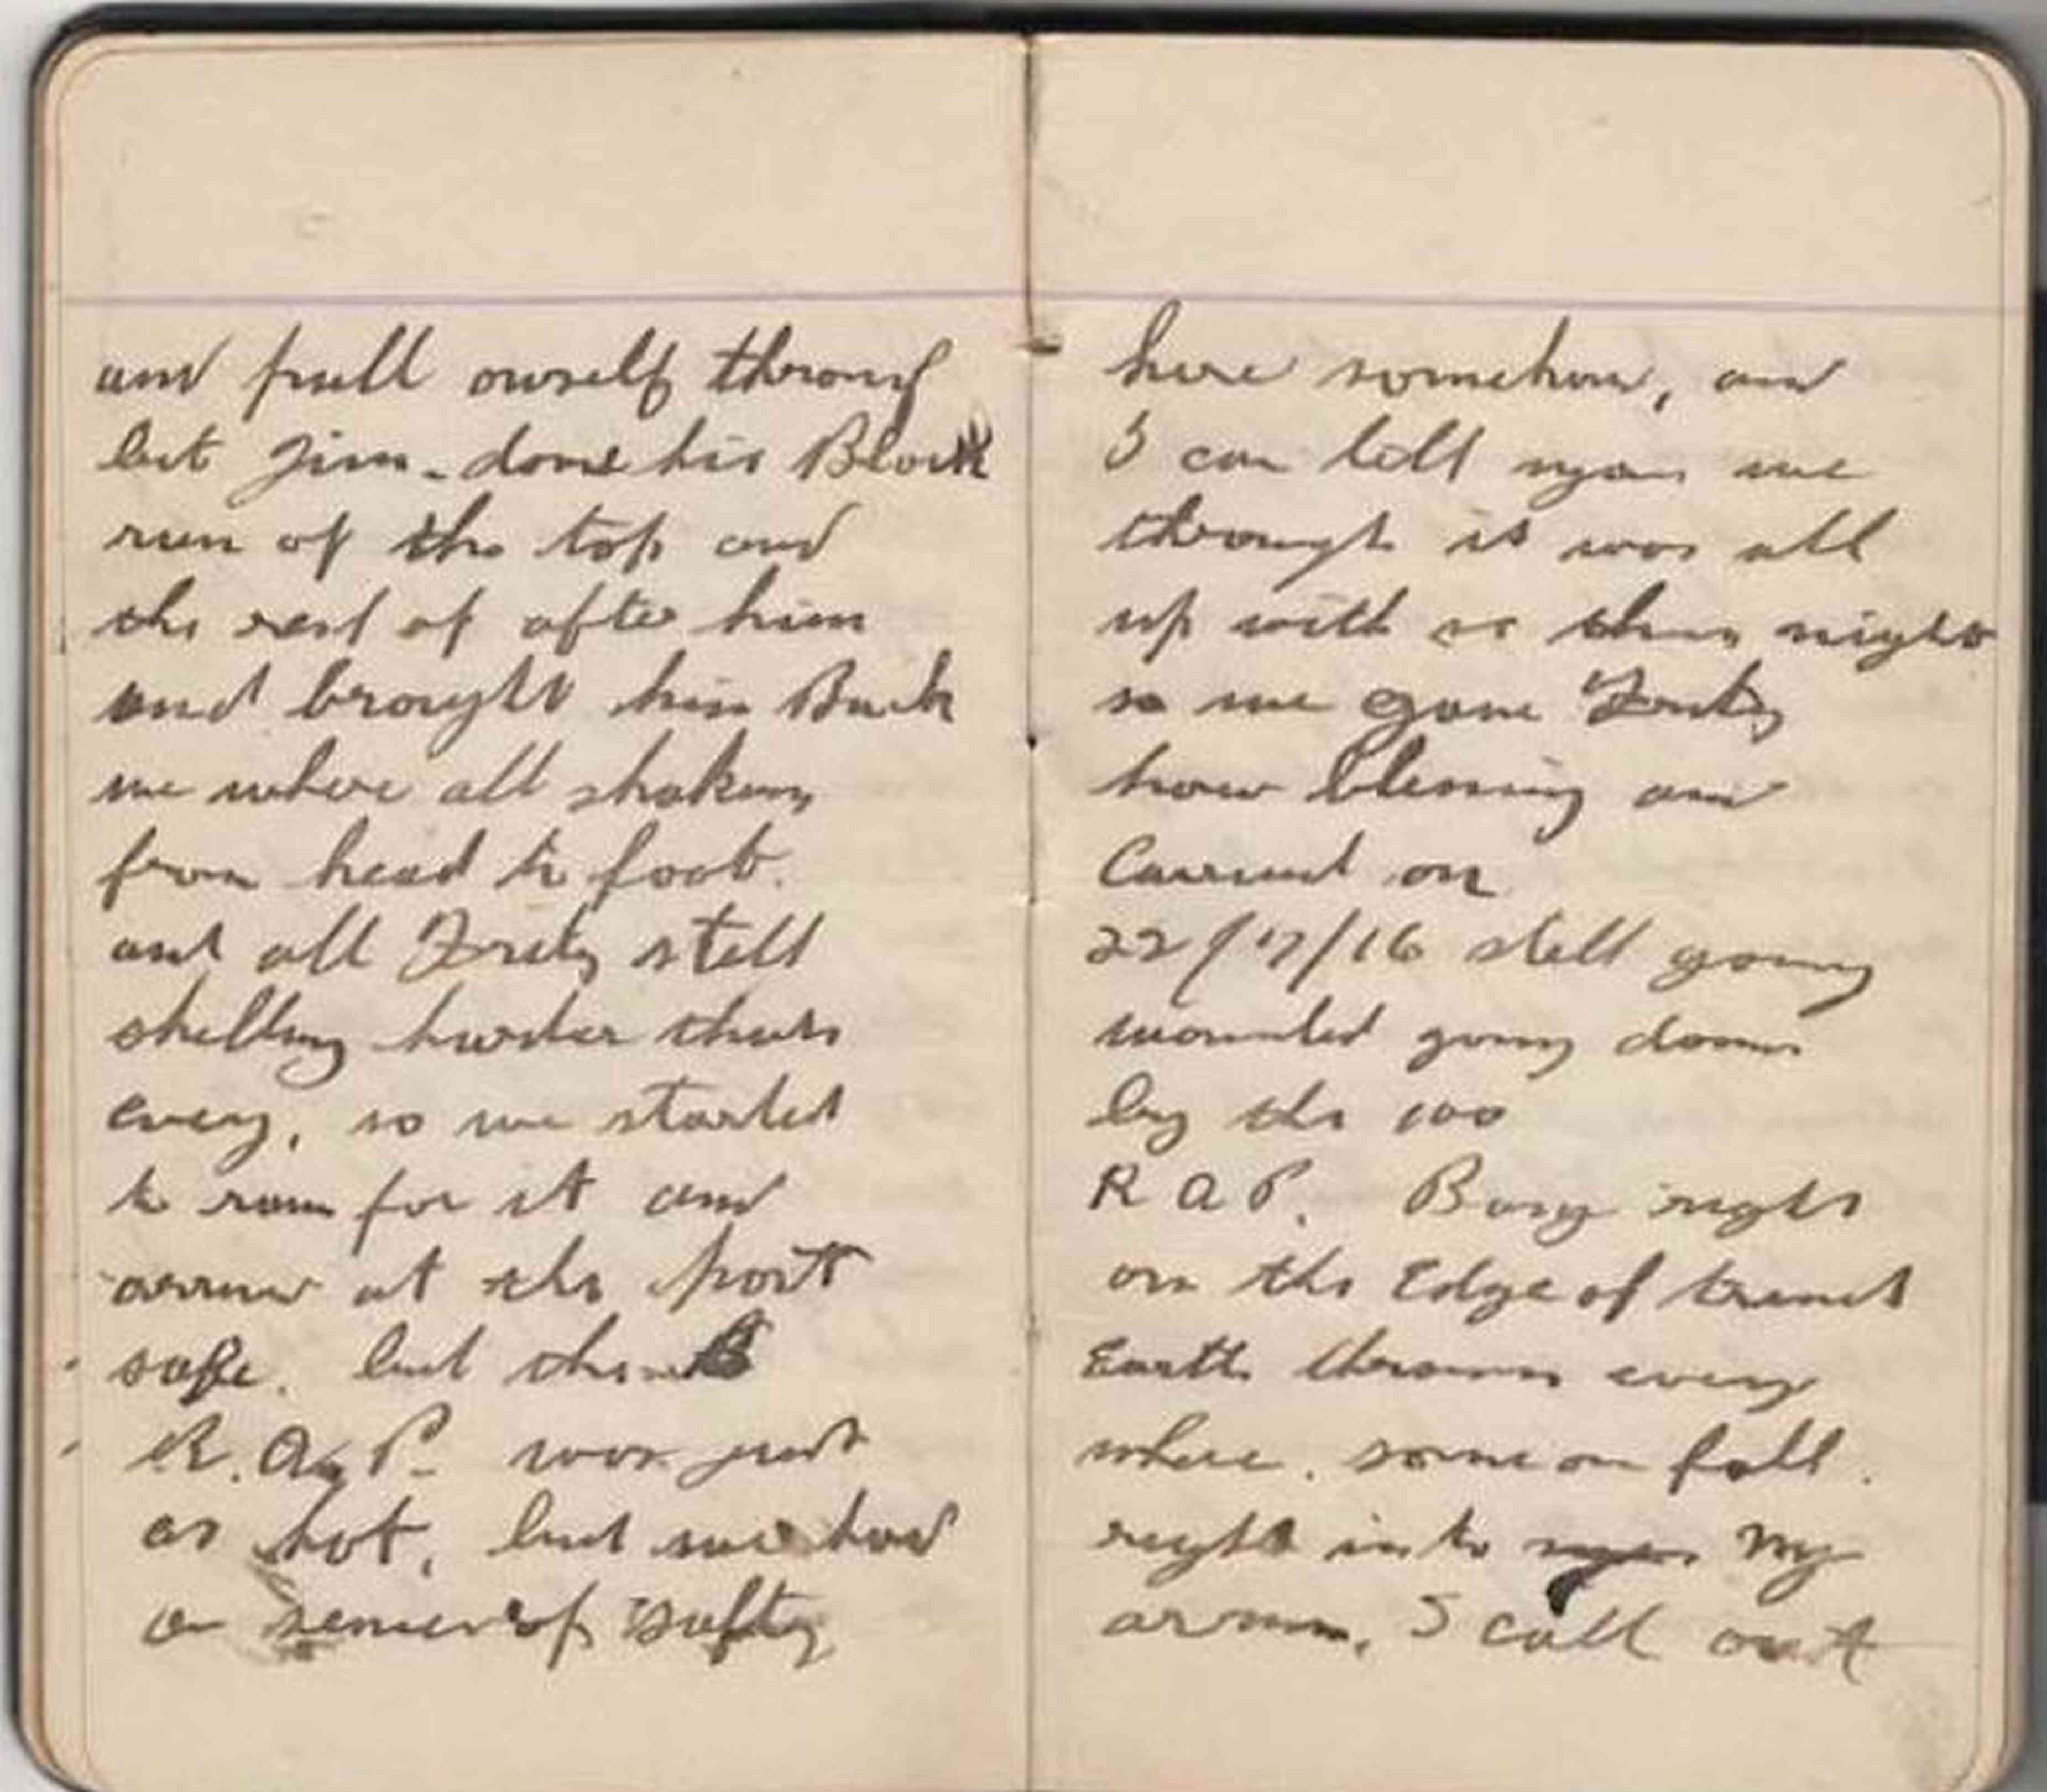 and pull ourself throug
but Jim - done his Block
run of the top and
the rest of after him
and brought him Back
we where all shaking
from head to foot.
and all Fritz still
shelling harder than
every, so we started
to run for it and
arrive at the post
safe. but the
R.A.P. was just
as hot, but we had
a sence of safty
here somehow, and
I can tell you we
through it was all
up with us this night
so we gave Fritz
how blessing and
Carried on
22/7/16 still going
wounded going down
by the 100
R A P. Bang right
on the Edge of trench
Earth thrown every
where. someone fall.
right into my
arms, I call out